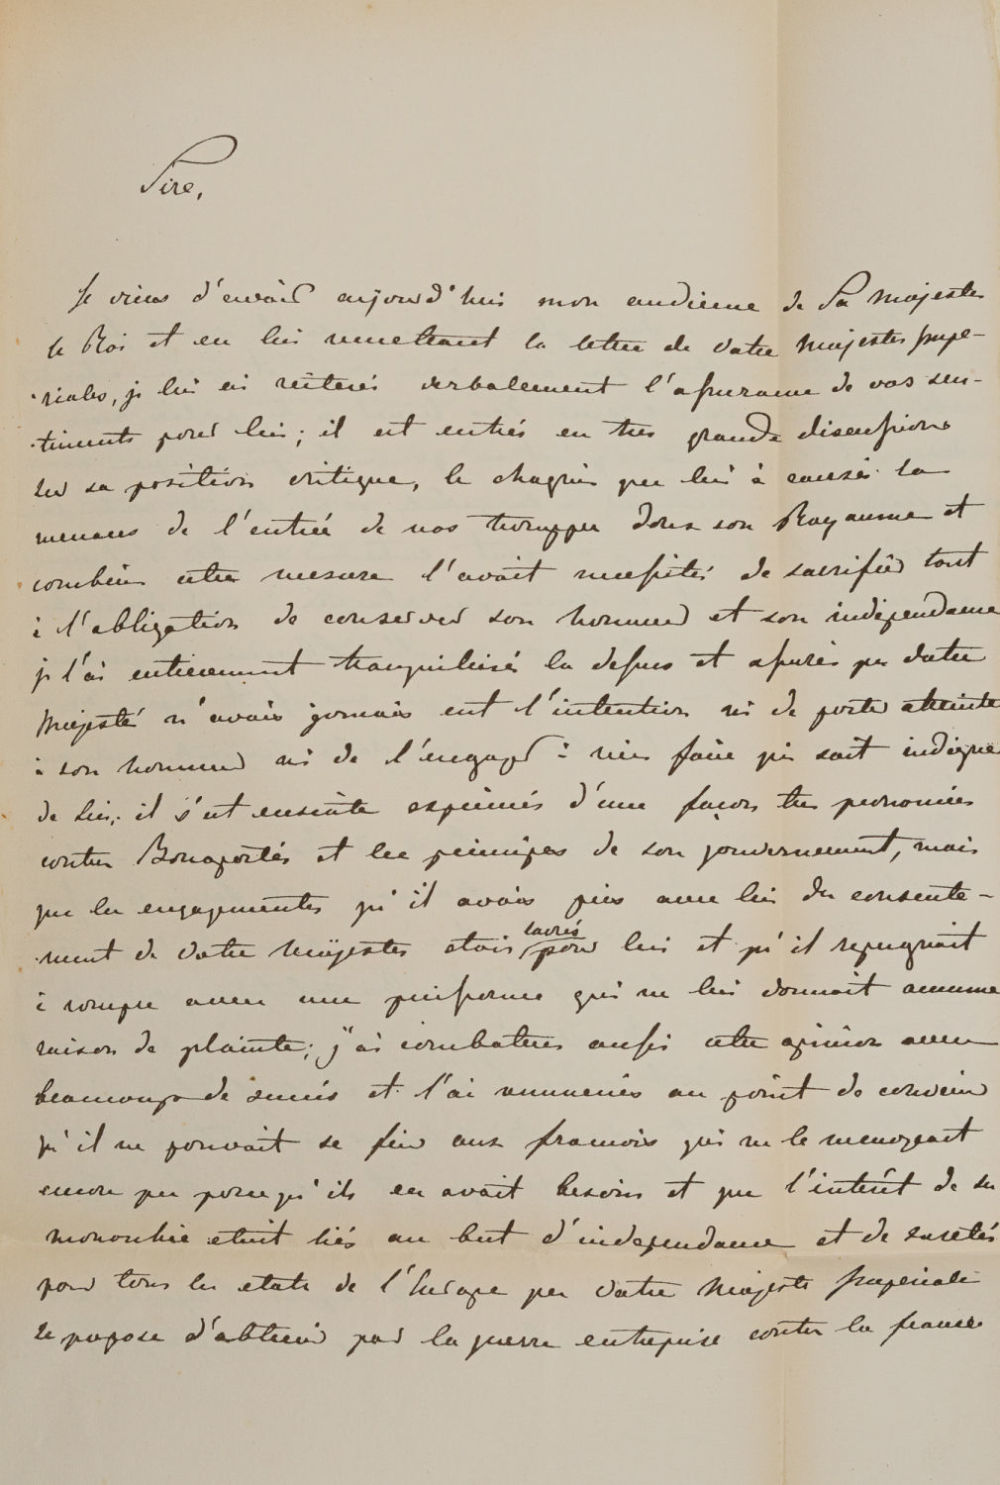 Sire,
Je viens d'avoir aujourd'hui mon audience de Sa Majestes
le Roi et en lui remettant la lettre de Votre Majestes Impe-
riales, je lui ai reiterés verbalement l'assurance de vos sen-
timents pour lui; il est entrés en tres grande discussions
sur sa position critique, le chagrin que lui à causés la
menaces de l'entrée de nos trouppes dans son Royaume et
combien cette mesure l'avait necessités de sacrifier tout
à l'obligation de conserver son honneur et son independance
je l'ai entierement tranquilisés la dessus et assurés que Votre
Majesté n'avais jamais eut l'intention ni de porter atteinte
à son honneur ni de l'engager à rien faire qui soit indigne
de lui; il s'est ensuite exprimés d'une façon tres prononcées
contre Bonapartes et les principes de son gouvernement, mais
que les engagements qu'il avais pris avec lui du consente-
ment de Votre Majestes etais sacrés pour lui et qu'il repugnait
à rompre avec une puissance qui ne lui donnait aucune
raison de plainte; j'ai combattues aussi cette opinion avec
beaucoup de succés et l'ai ammenés au point de convenir
qu'il ne pouvait se fier aux francois qui ne le menageait
encore que parcequ'ils en avait besoin et que l'intérêt de sa
monarchie etait liés au but d'independance et de suretés
pour tous les etats de l'Europe que Votre Majeste Imperiale
se propose d'obtenir par la guerre entreprise contre la france